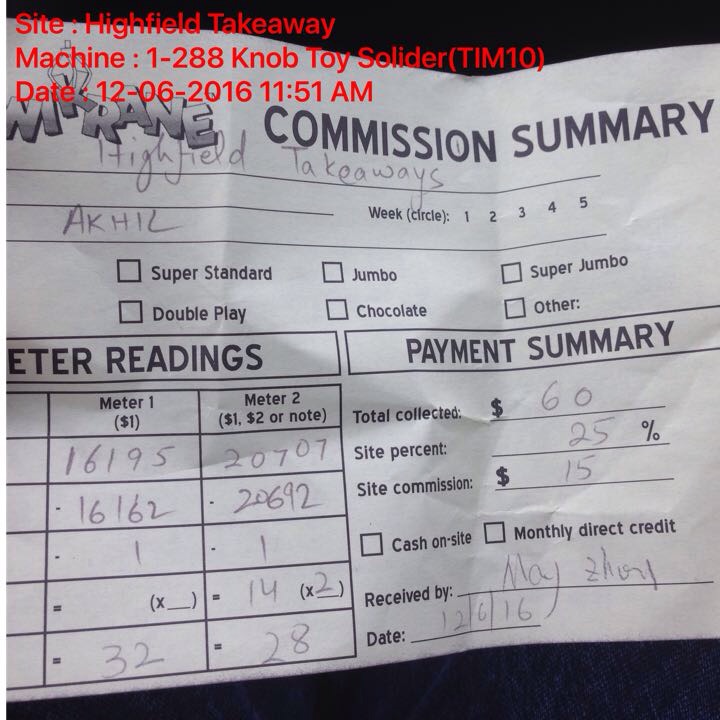 Site : Highfield Takeaway
Machine : 1-288 Knob Toy Solider(TIM10)
Date : 12-06-2016 11:51 AM
COMMISSION SUMMARY
Highfield Takeaways
AKHIL
Week (circle): 1 2 3 4 5
Super Standard Jumbo Super Jumbo
Double Play Chocolate Other:
ETER READINGS
PAYMENT SUMMARY
Meter 1 ($1)
Meter 2 ($1, $2 or note)
16195 20707
- 16162 - 20692
- 1 - 1
= (x__) = 14 (x2)
= 32 = 28
Total collected: $ 60
Site percent: 25 %
Site commission: $ 15
Cash on-site Monthly direct credit
Received by: May
Date: 12/6/16